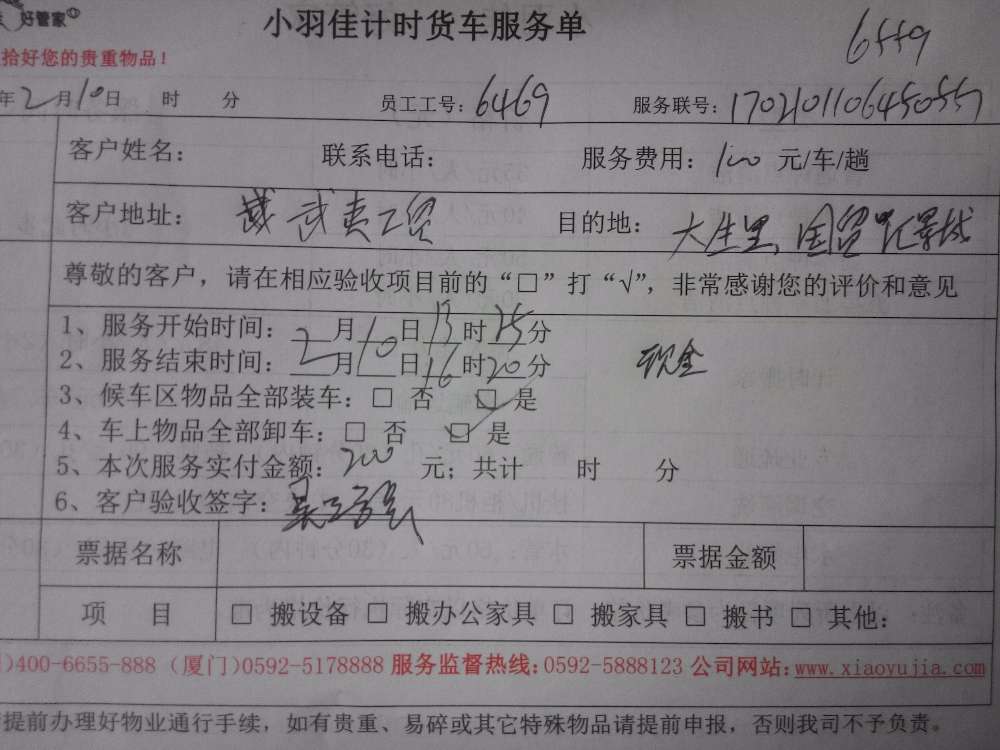 好管家
小羽佳计时货车服务单
拾好您的贵重物品！
年2月10日 时 分 员工工号：6469 服务联号：
客户姓名： 联系电话： 服务费用：100 元/车/趟
客户地址： 武夷工贸 目的地：大生里，国贸汇景城
尊敬的客户，请在相应验收项目前的“□”打“√”，非常感谢您的评价和意见
1、服务开始时间：2月10日13时25分
2、服务结束时间：2月10日16时20分 现金
3、候车区物品全部装车：□ 否 ☑ 是
4、车上物品全部卸车：□ 否 ☑ 是
5、本次服务实付金额：200 元；共计 时 分
6、客户验收签字：
票据名称 票据金额
项 目 □ 搬设备 □ 搬办公家具 □ 搬家具 □ 搬书 □ 其他：
)400-6655-888（厦门)0592-5178888 服务监督热线:0592-5888123 公司网站:www.xiaoyujia.com
提前办理好物业通行手续，如有贵重、易碎或其它特殊物品请提前申报，否则我司不予负责。